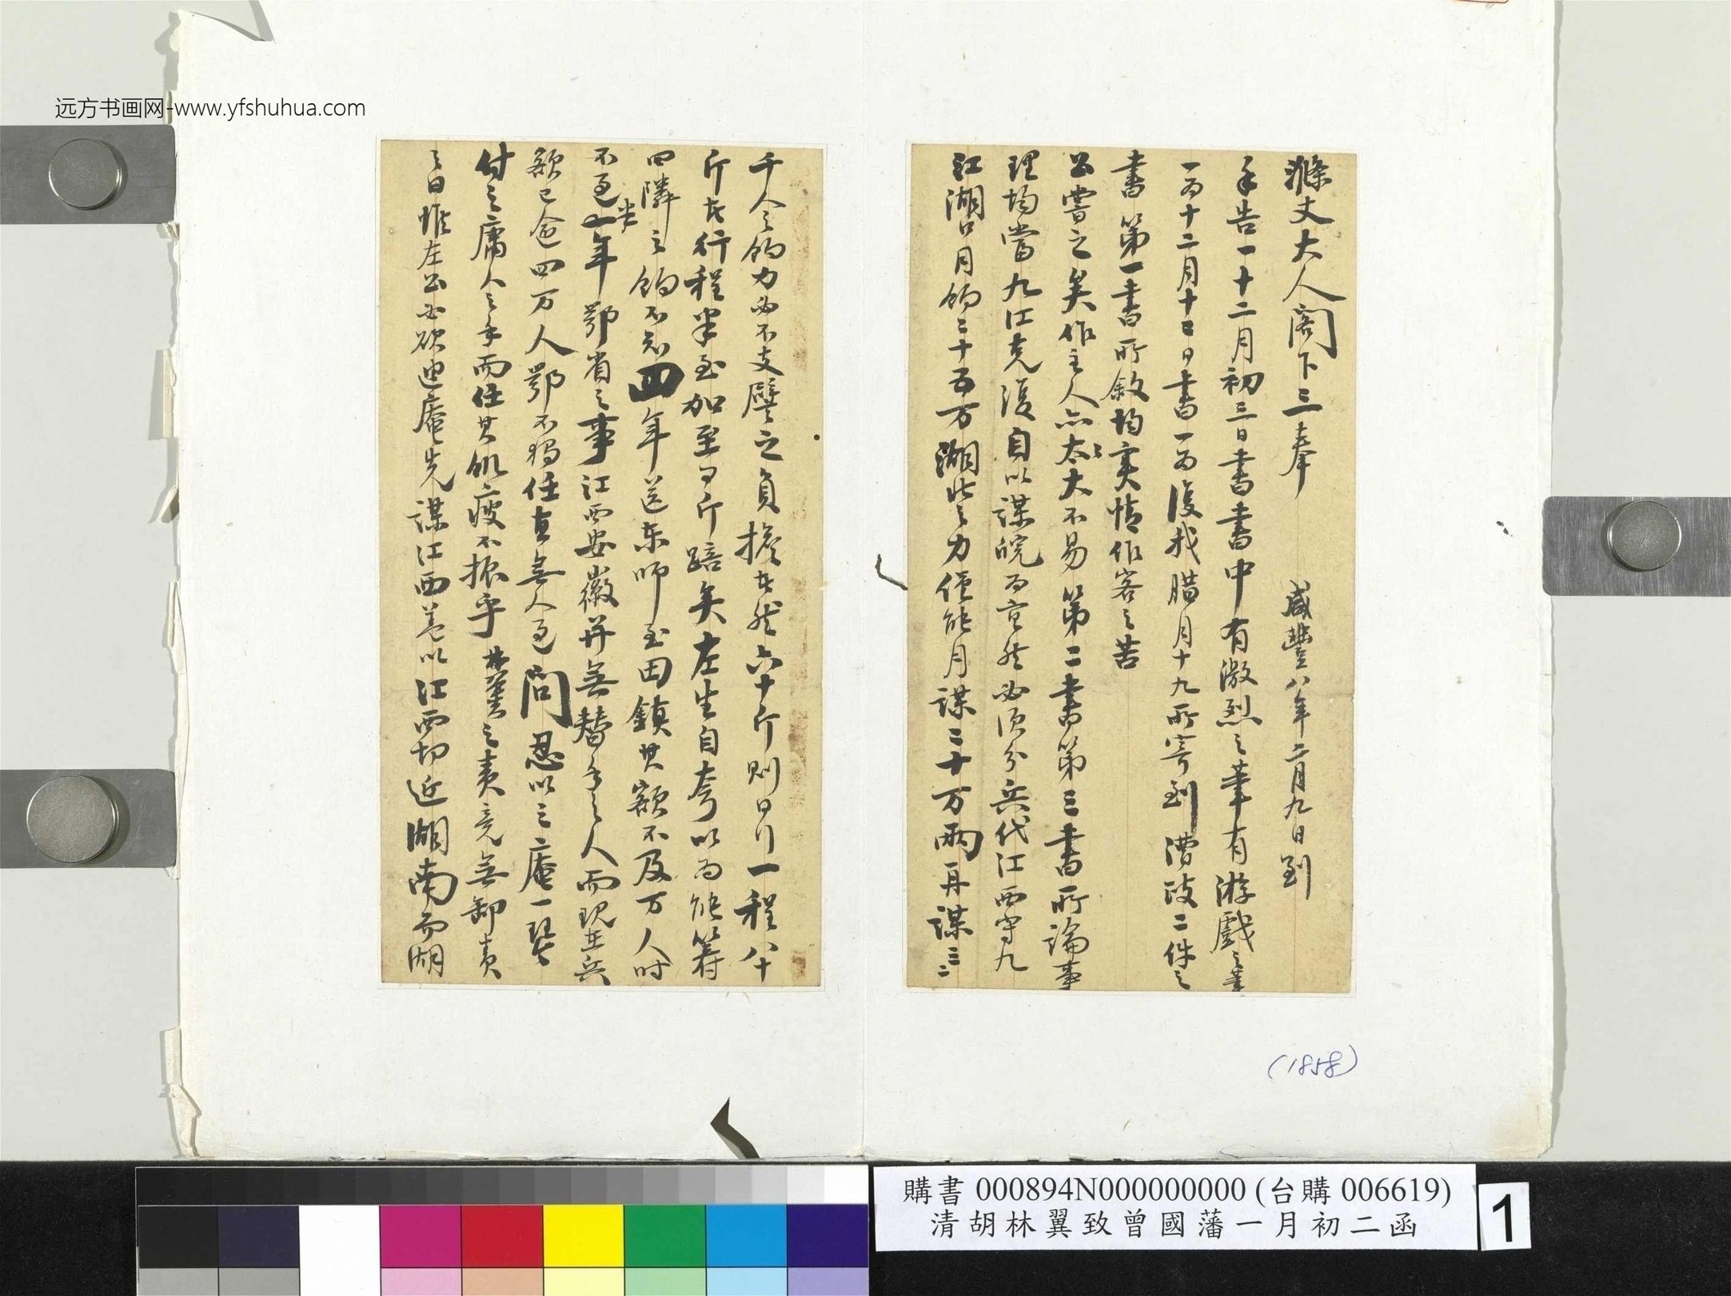 远方书画网-www.yfshuhua.com
滌丈大人閣下三奉
咸豐八年二月九日到
手告一十二月初三日書書中有激烈之筆有游戲之筆
一為十二月十日書一為復我腊月十九所寄到漕政二件之
書第一書所敘均實情作客之苦
公嘗之矣作主人亦太大不易第二書第三書所論事
理均當九江克復自以謀皖為宜然必須分兵代江西守九
江湖口月餉三十五万湖北之力僅能月謀三十万兩再謀三二
千人之餉力必不支譬之負擔者然六十斤則日行一程八十
斤者行程半至加至百斤踣矣左生自夸以為能籌
四隣之餉不知四年送東師至田鎮其額不及万人時
不過半年鄂省之事江西安徽并無替手之人而現在兵
額已逾四万人鄂不獨任直無人過問忍以三庵一琴
付之庸人之手而任其飢疲不振乎林翼之責竟無卸責
之日惟左公必欲迪庵先謀江西蓋以江西切近湖南而湖
(1858)
購書 000894N000000000 (台購 006619)
清胡林翼致曾國藩一月初二函
1